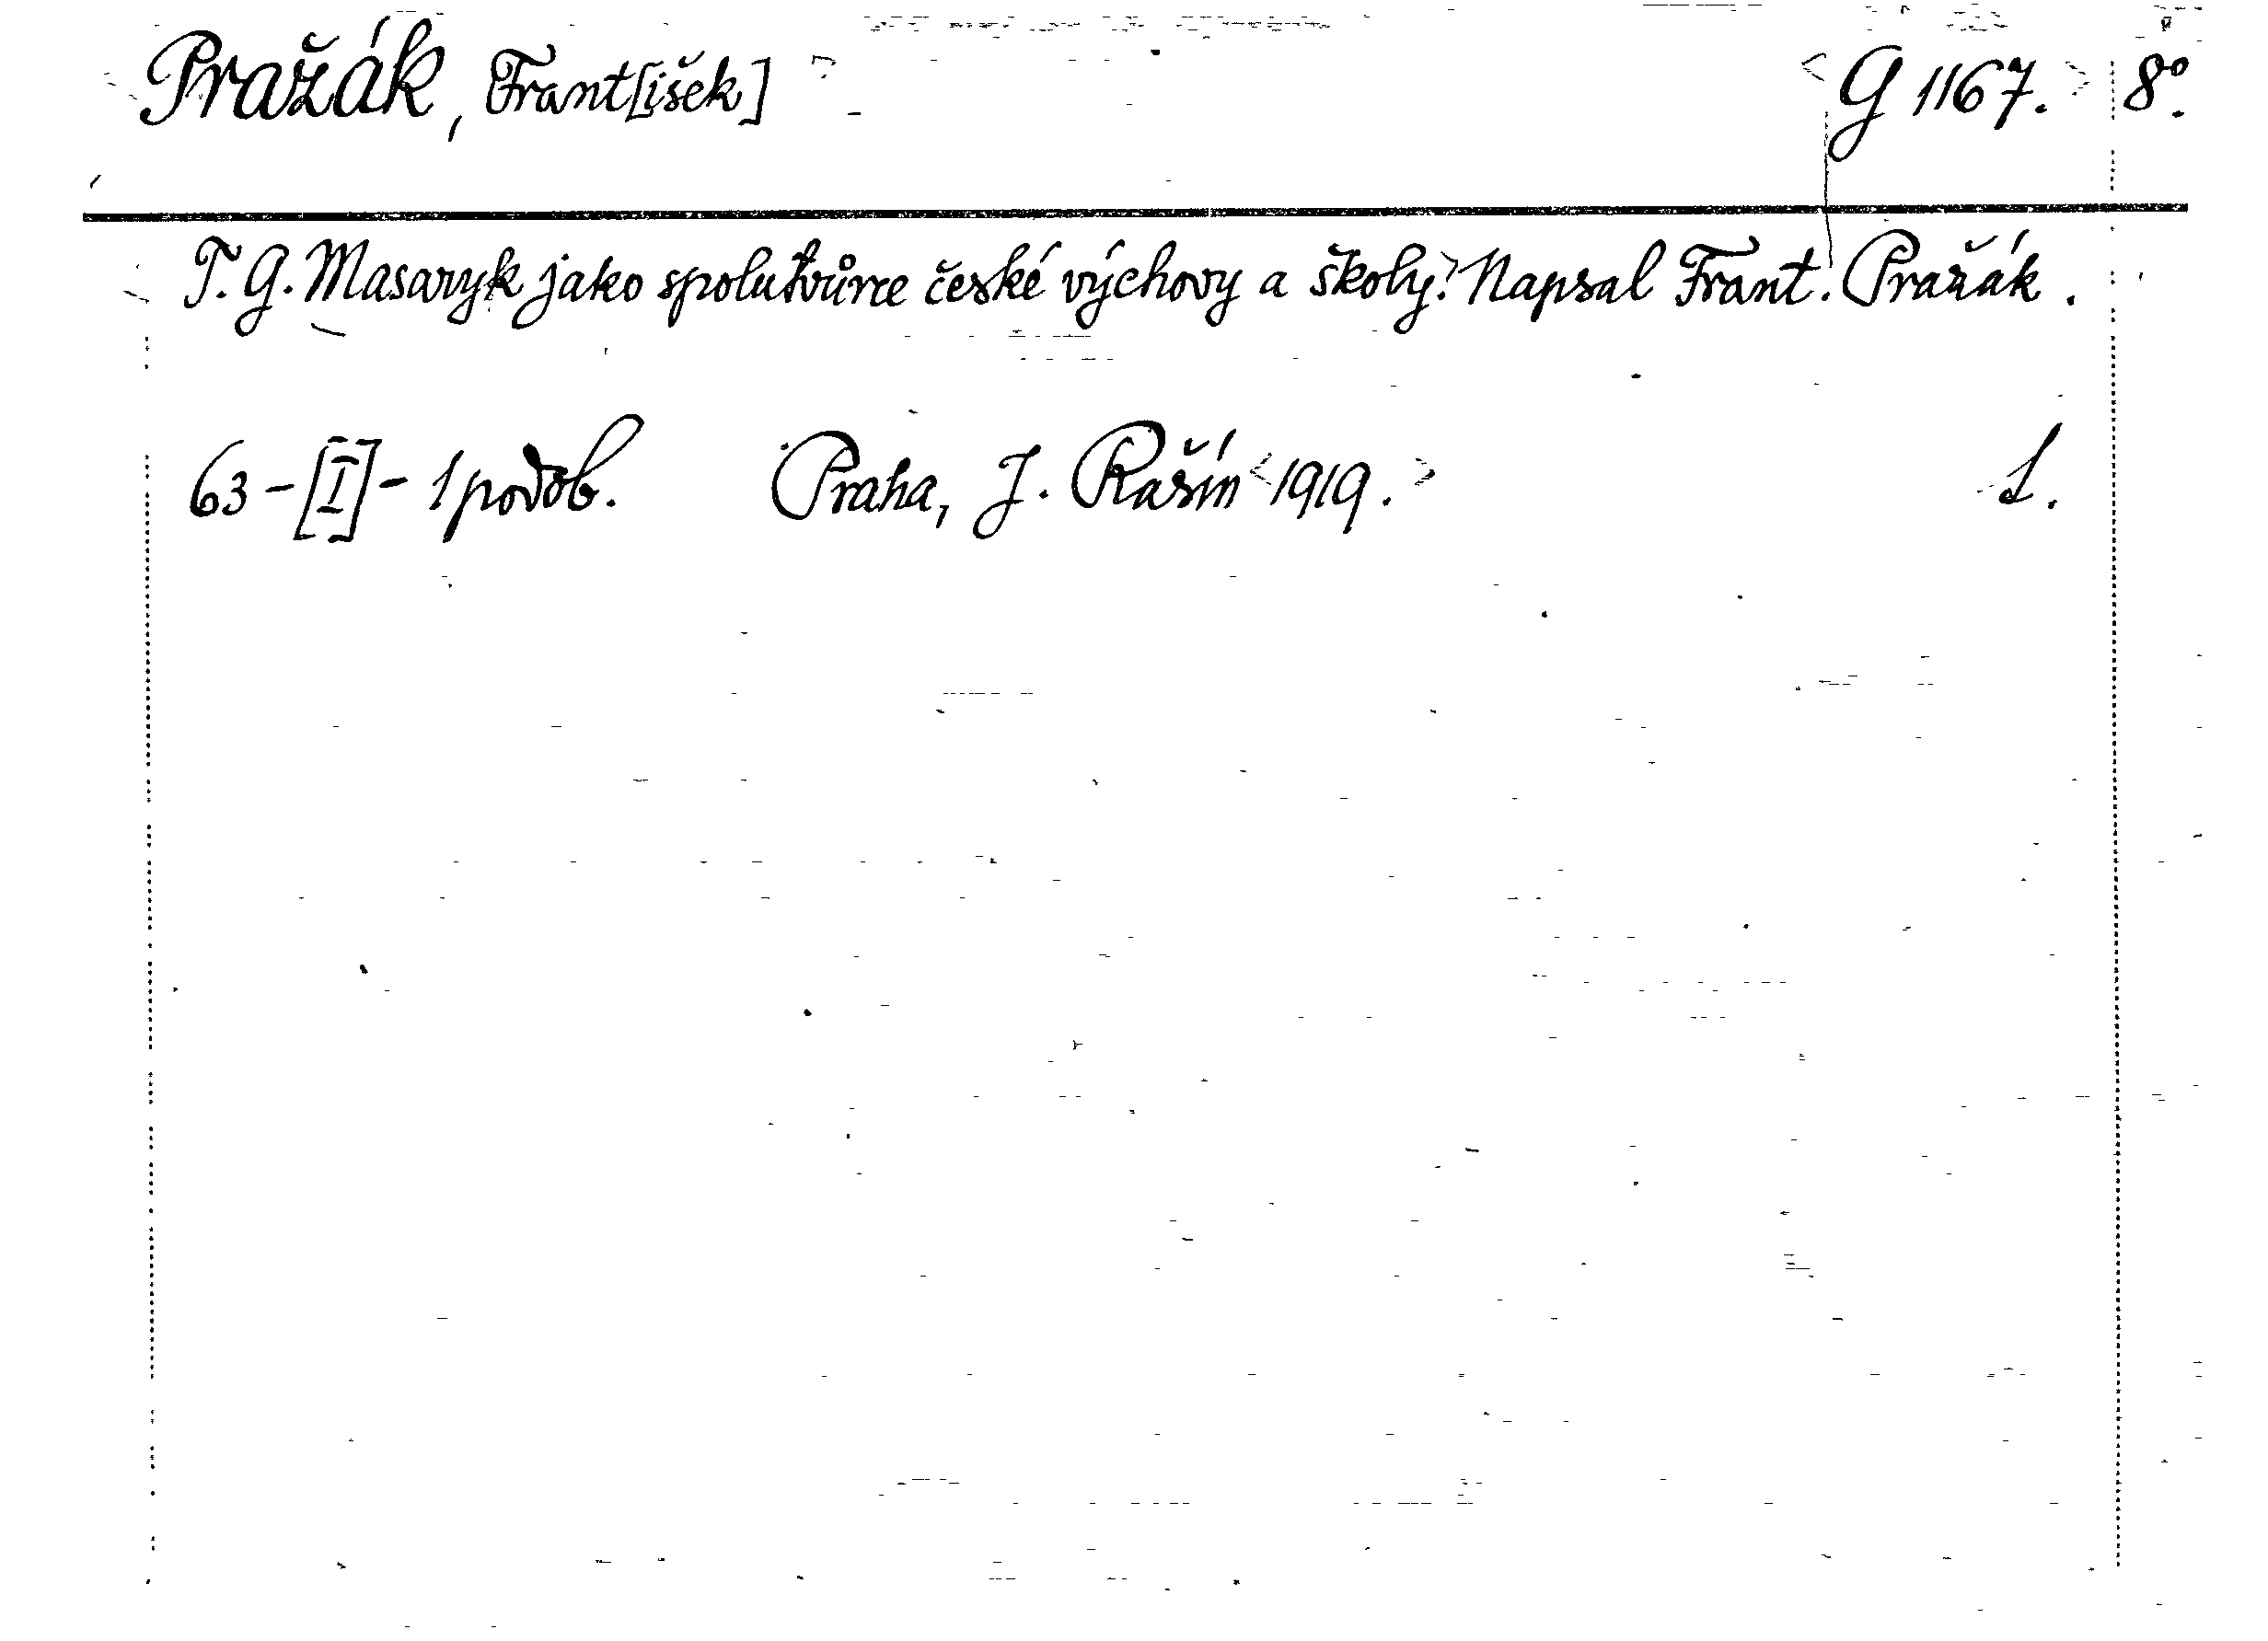 Pražák, Frant[išek] G 1167. 8°.
T. G. Masaryk jako spolutvůrce české výchovy a školy. Napsal Frant. Pražák.
63-[I]-1 podob. Praha, J. Rašín 1919. 1.